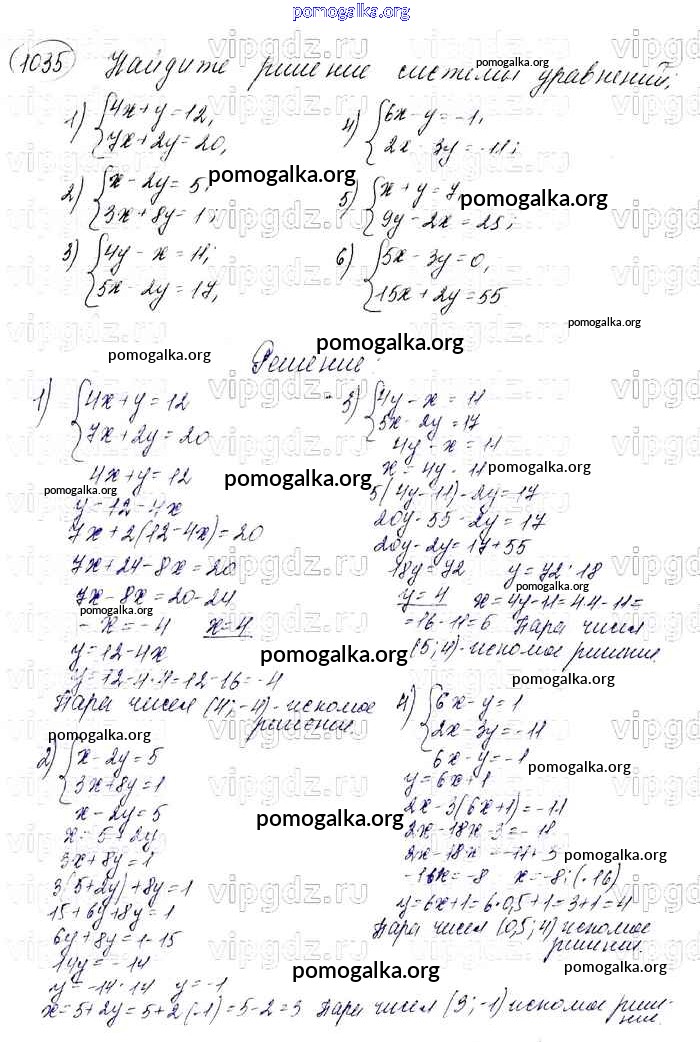 pomogalka.org
1035 Найдите решение системы уравнений:
1) {4x + y = 12,
7x + 2y = 20,
2) {x - 2y = 5,
3x + 8y = 1;
3) {4y - x = 11;
5x - 2y = 17,
4) {6x - y = -1,
2x - 3y = -11;
5) {x + y = 7,
9y - 2x = 25;
6) {5x - 3y = 0,
15x + 2y = 55
Решение:
1) {4x + y = 12
7x + 2y = 20
4x + y = 12
y = 12 - 4x
7x + 2(12 - 4x) = 20
7x + 24 - 8x = 20
7x - 8x = 20 - 24
- x = -4 x = 4
y = 12 - 4x
y = 12 - 4·4 = 12 - 16 = -4
Пара чисел (4; -4) - искомое
решение.
2) {x - 2y = 5
3x + 8y = 1
x - 2y = 5
x = 5 + 2y
3x + 8y = 1
3(5 + 2y) + 8y = 1
15 + 6y + 8y = 1
6y + 8y = 1 - 15
14y = -14
y = -14 : 14 y = -1
x = 5 + 2y = 5 + 2(-1) = 5 - 2 = 3 Пара чисел (3; -1) искомое реше-
ние.
3) {4y - x = 11
5x - 2y = 17
4y - x = 11
x = 4y - 11
5(4y - 11) - 2y = 17
20y - 55 - 2y = 17
20y - 2y = 17 + 55
18y = 72 y = 72 : 18
y = 4 x = 4y - 11 = 4·4 - 11 =
= 16 - 11 = 6 Пара чисел
(5; 4) - искомое решение.
4) {6x - y = 1
2x - 3y = -11
6x - y = -1
y = 6x + 1
2x - 3(6x + 1) = -11
2x - 18x - 3 = -11
2x - 18x = -11 + 3
-16x = -8 x = -8 : (-16)
y = 6x + 1 = 6·0,5 + 1 = 3 + 1 = 4
Пара чисел (0,5; 4) искомое
решение.